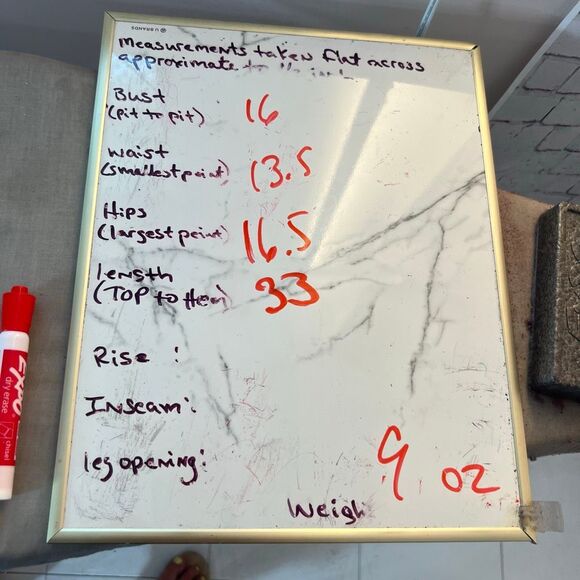 U BRANDS
Measurements taken flat across
approximate
Bust
(pit to pit) 16
waist
(smallest point) 13.5
Hips
(largest point) 16.5
length
(TOP to Hem) 33
Rise :
Inseam:
leg opening:
9 oz
Weigh
EXPO
dry erase
chisel